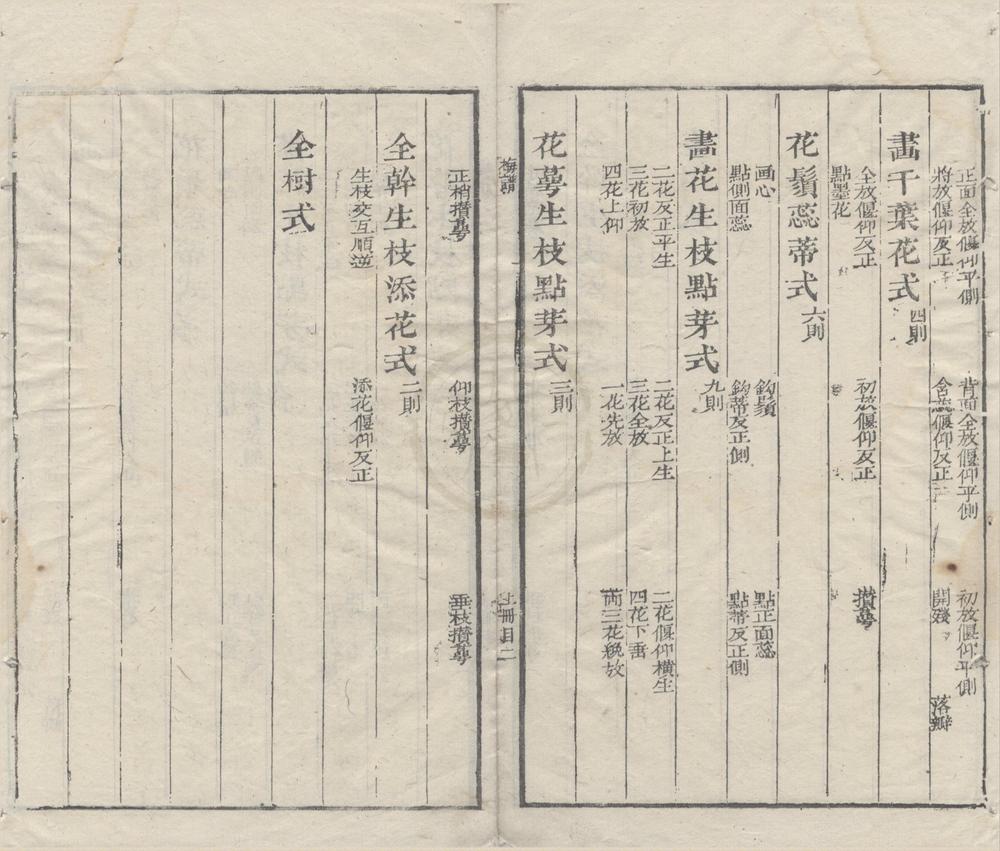 正面全放偃仰平側 背面全放偃仰平側 初放偃仰平側
將放偃仰反正 含蕊偃仰反正 開殘 落瓣
畫千葉花式 四則
全放偃仰反正 初放偃仰反正 攅萼
點墨花
花鬚蕊蒂式 六則
画心 鈎鬚 點正面蕊
點側面蕊 鈎蒂反正側 點蒂反正側
畫花生枝點芽式 九則
二花反正平生 二花反正上生 二花偃仰橫生
三花初放 三花全放 四花下垂
四花上仰 一花先放 兩三花統放
花萼生枝點芽式 三則
梅譜 上冊目二
正梢攅萼 仰枝攅萼 垂枝攅萼
全幹生枝添花式 二則
生枝交互順逆 添花偃仰反正
全樹式